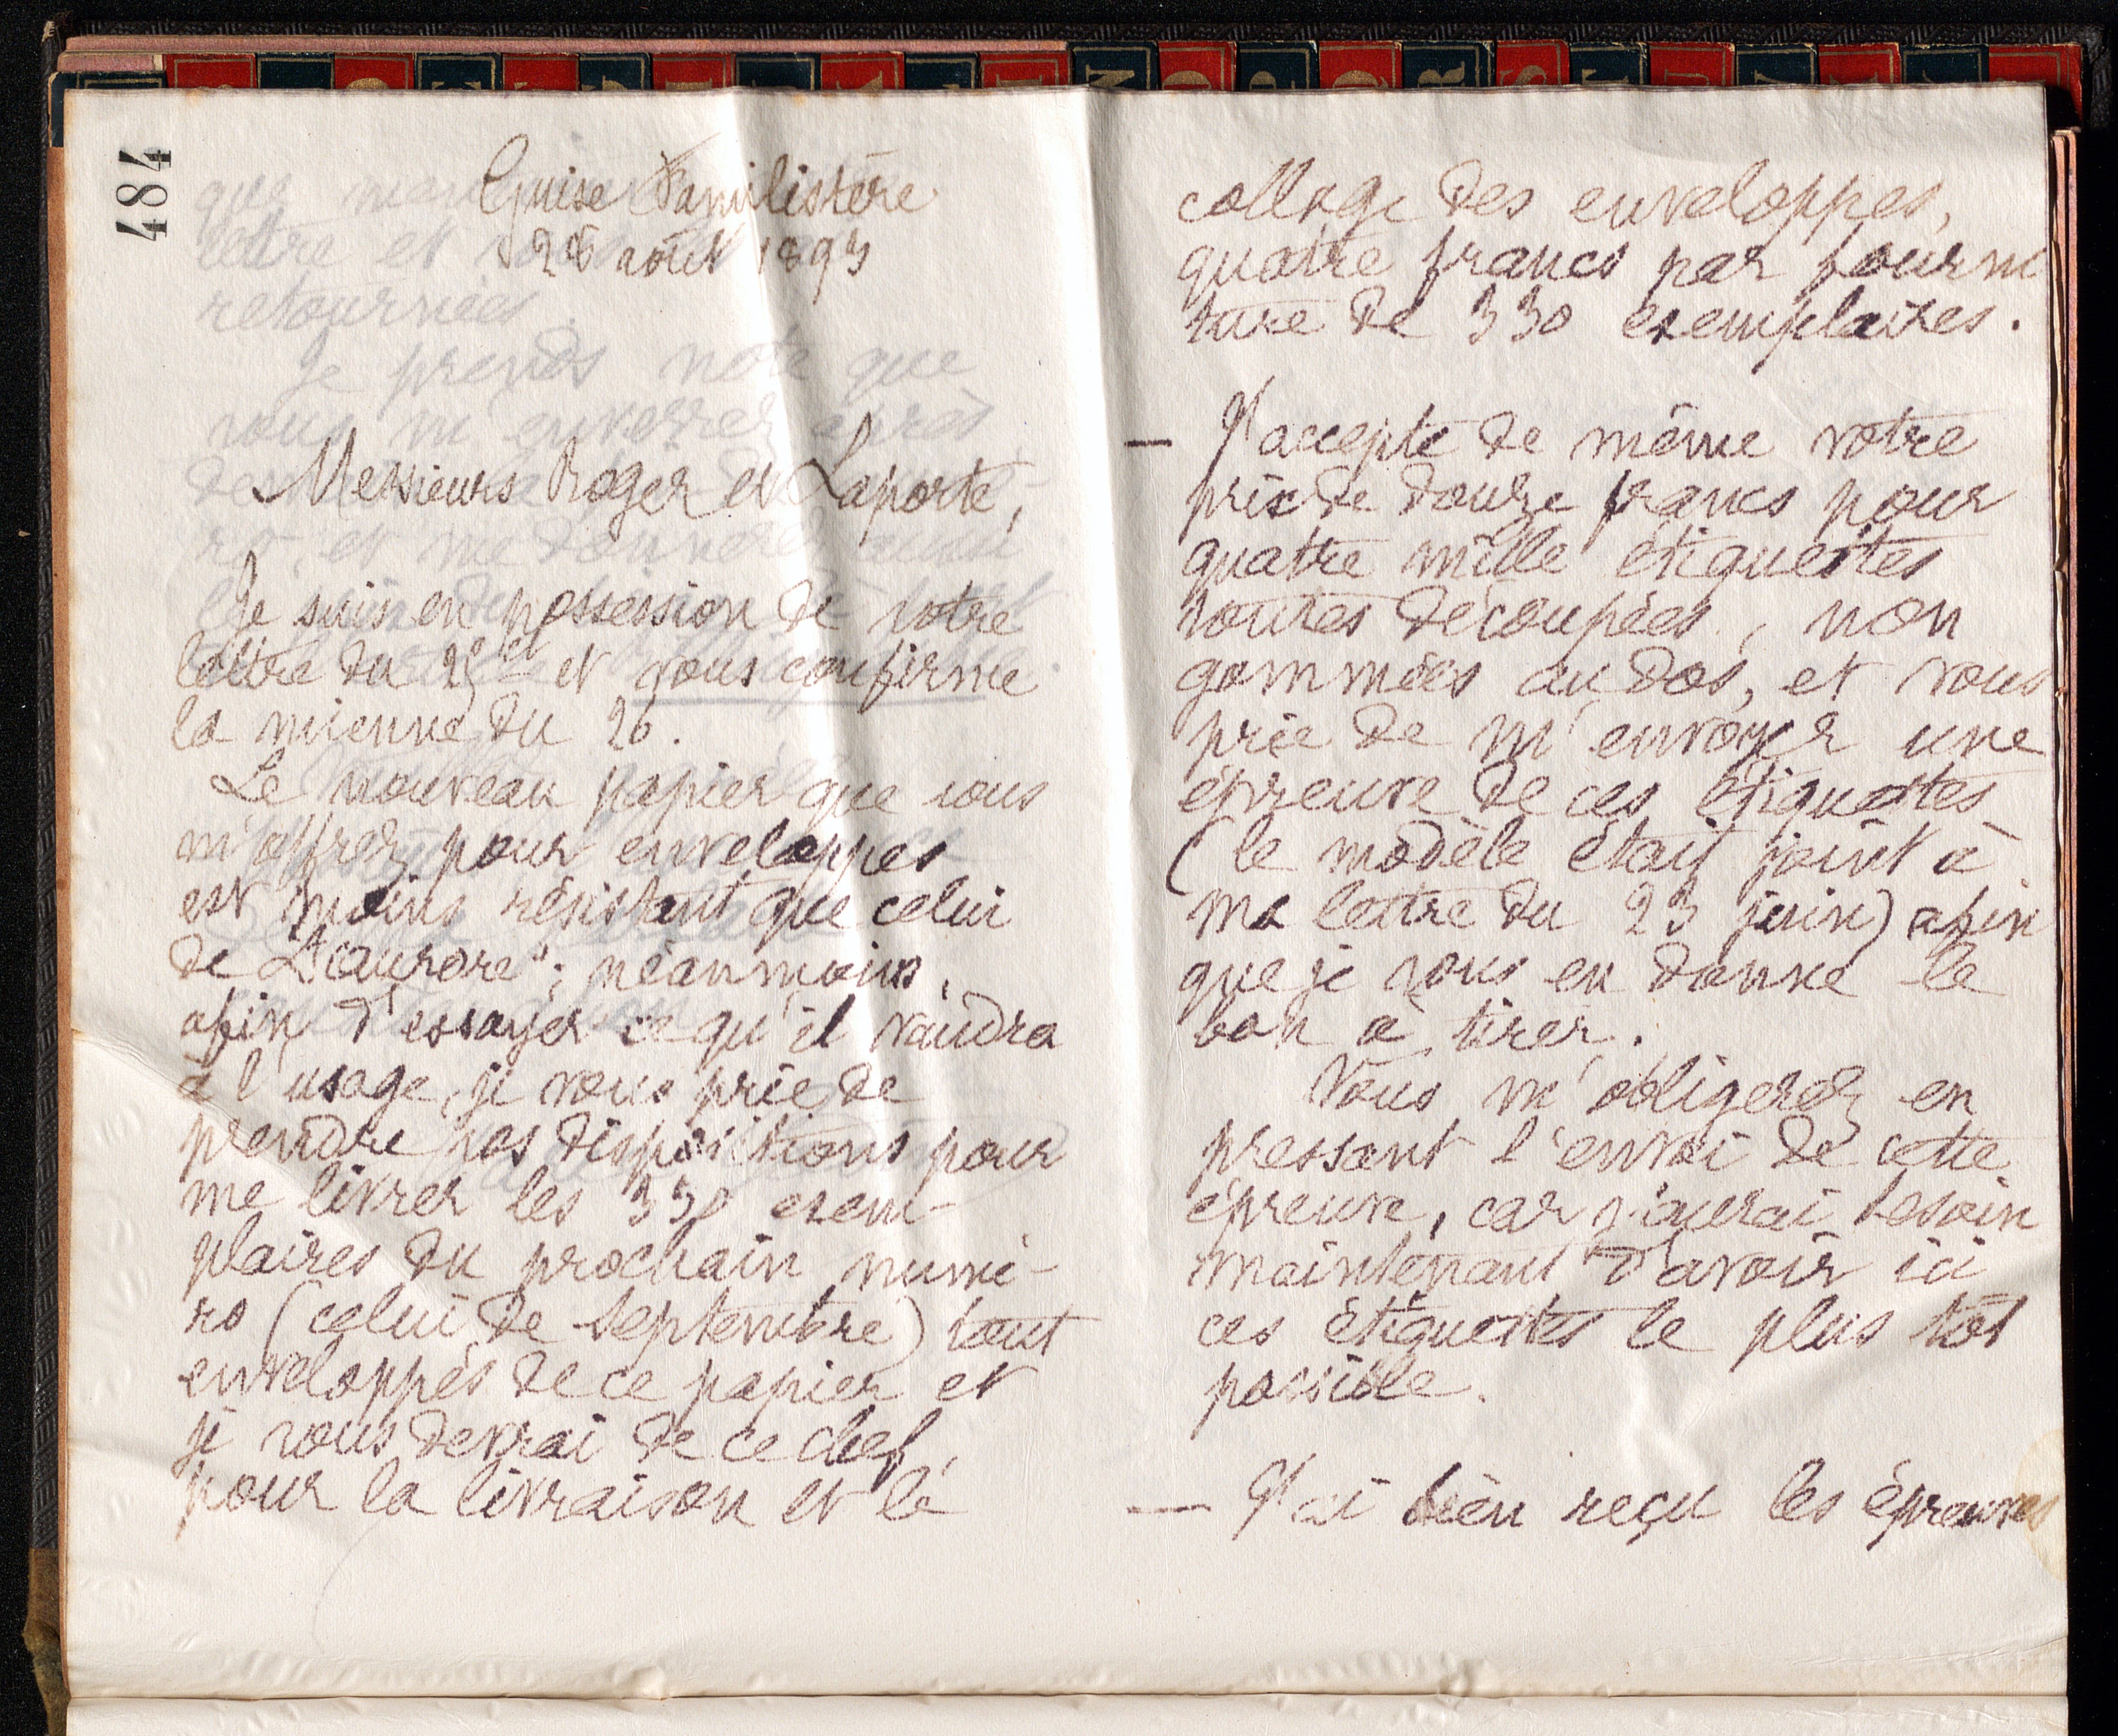 484
Guise Familistère
26 août 1893
Messieurs Roger et Laporte,
Je suis en possession de votre
lettre du 25 ct et vous confirme
la mienne du 26.
Le nouveau papier que vous
m'offrez pour enveloppes
est moins résistant que celui
de "L'aurore"; néanmoins,
afin d'essayer ce qu'il vaudra
à l'usage, je vous prie de
prendre vos dispositions pour
me livrer les 330 exem-
plaires du prochain numé-
ro (celui de septembre) tout
enveloppés de ce papier et
je vous devrai de ce chef,
pour la livraison et le
collage des enveloppes,
quatre francs par fourni
ture de 330 exemplaires.
— J'accepte de même votre
prix de douze francs pour
quatre mille étiquettes
toutes découpées, non
gommées au dos, et vous
prie de m'envoyer une
épreuve de ces étiquettes
(le modèle était joint à
ma lettre du 23 juin) afin
que je vous en donne le
bon à tirer.
Vous m'obligerez en
pressant l'envoi de cette
épreuve, car j'aurai besoin
maintenant d'avoir ici
ces étiquettes le plus tôt
possible.
— J'ai bien reçu les épreuves